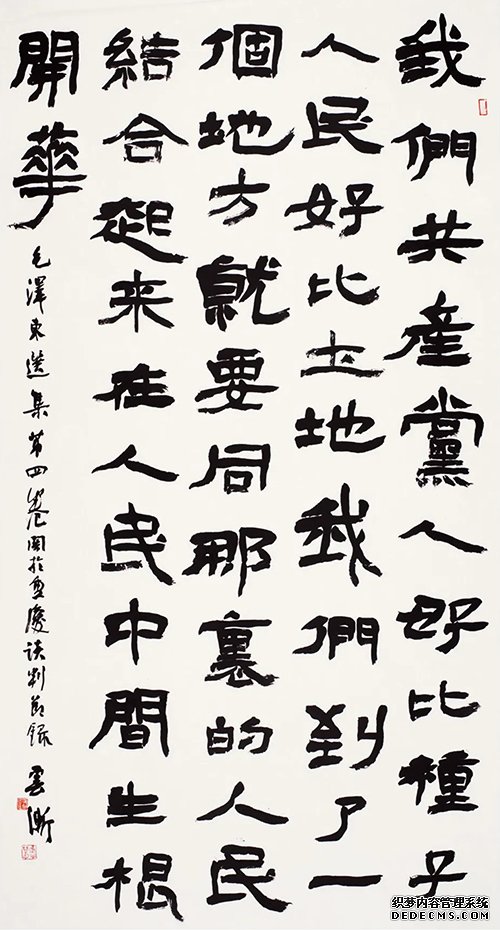 我們共產黨人好比種子
人民好比土地我們到了一
個地方就要同那裏的人民
結合起來在人民中間生根
開華
毛澤東選集第四卷關於重慶談判節錄
雲
织梦内容管理系统
DEDECMS.COM